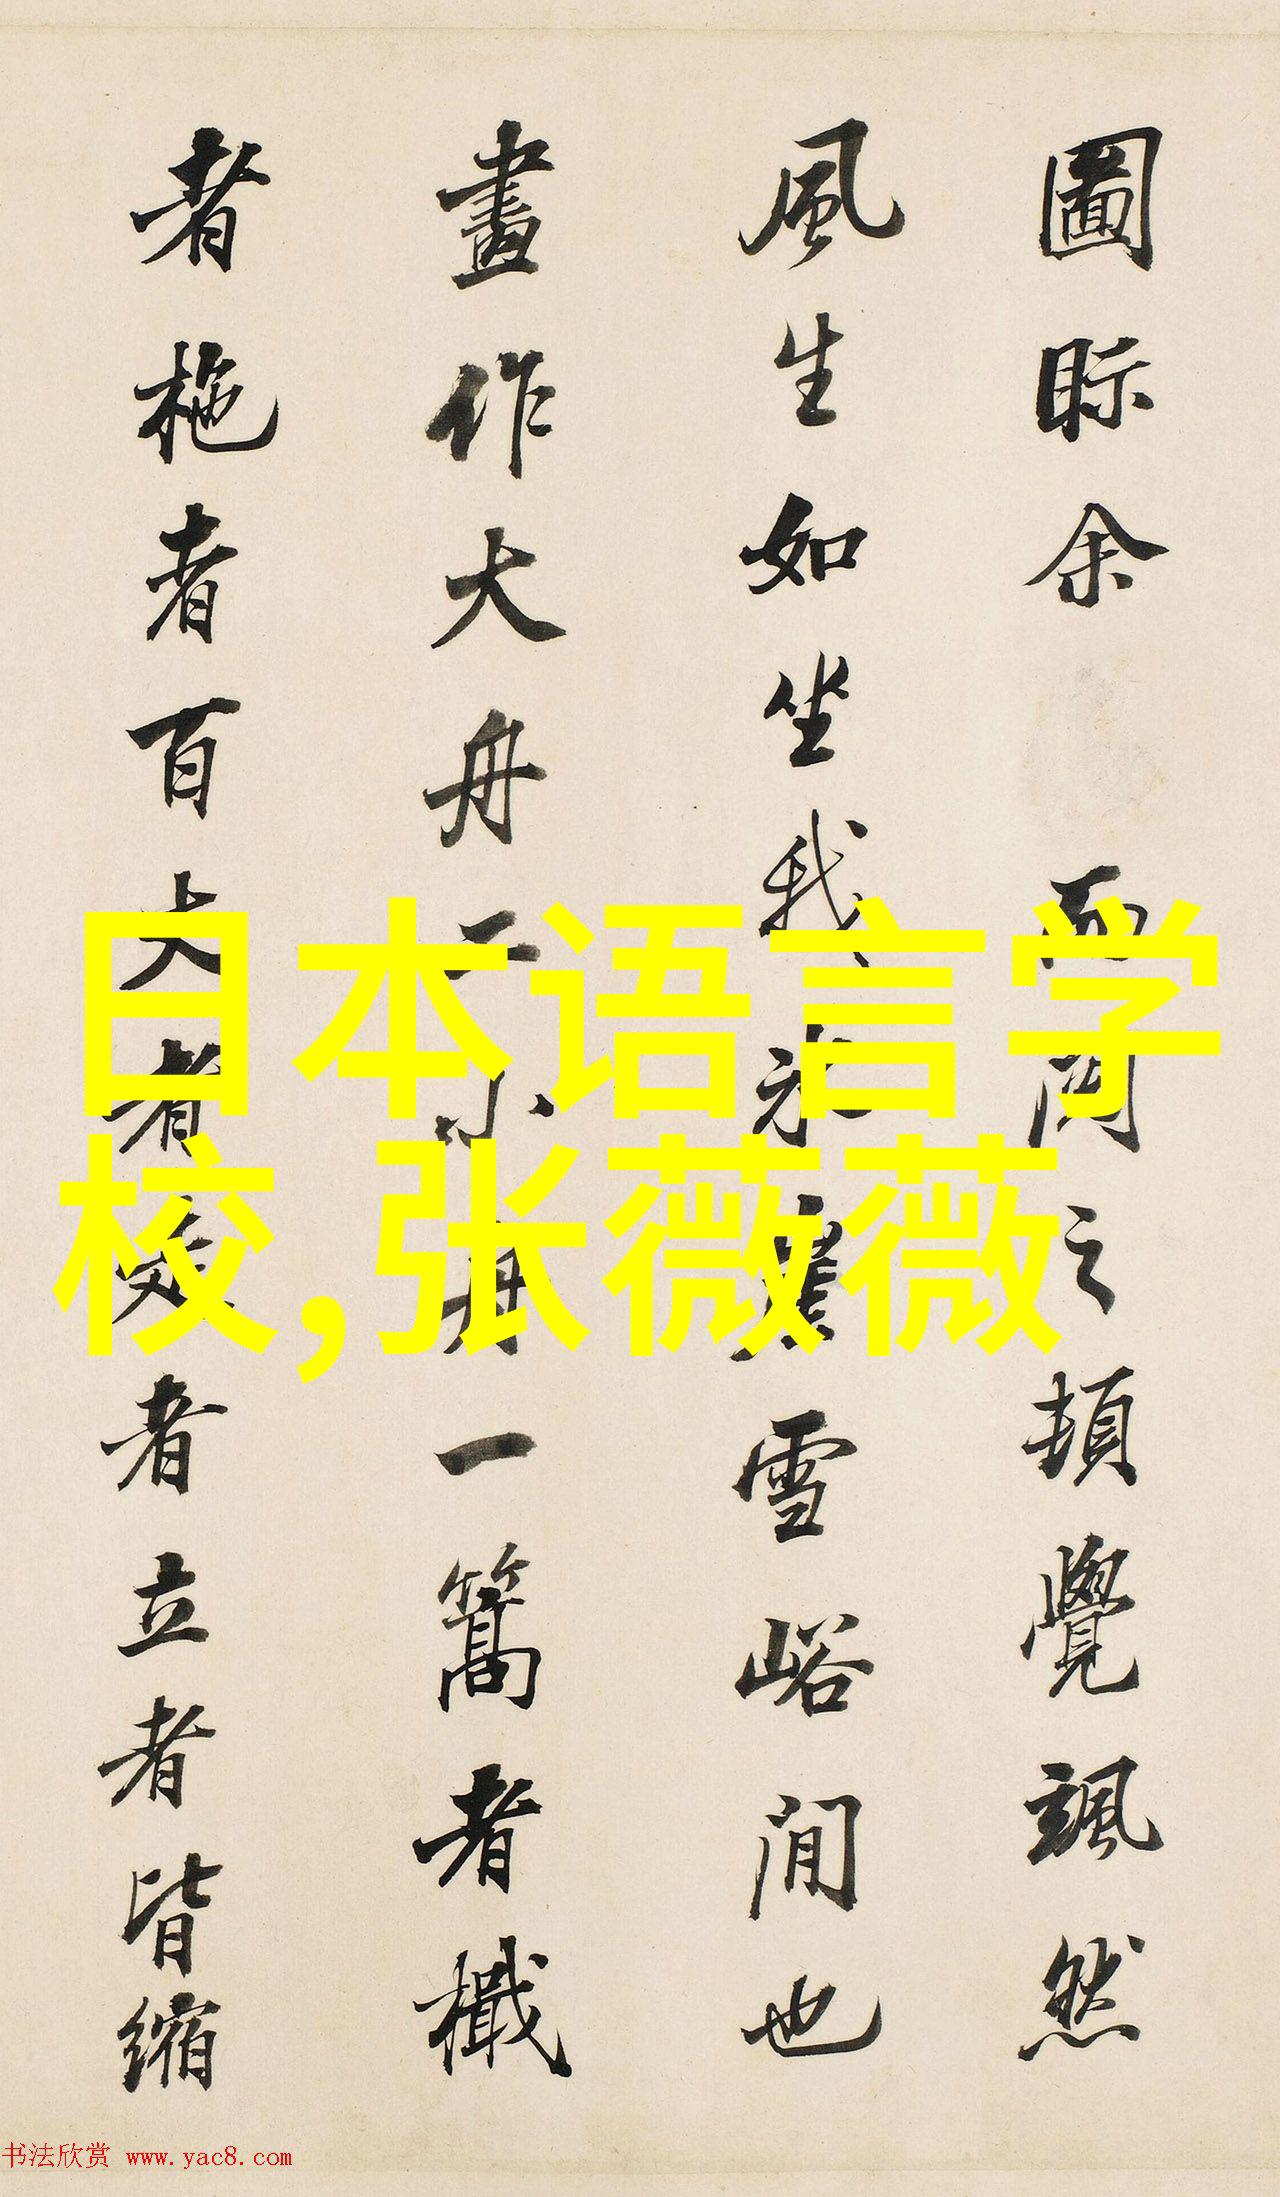 圖眎余 而閱之頓覺颯然
風生如坐我冰崖雪峪間也
畫作大舟二小舟一篙者檝
者柂者百丈者
者立者皆縮
日本语言学
校,张薇薇
书法欣赏 www.yac8.com